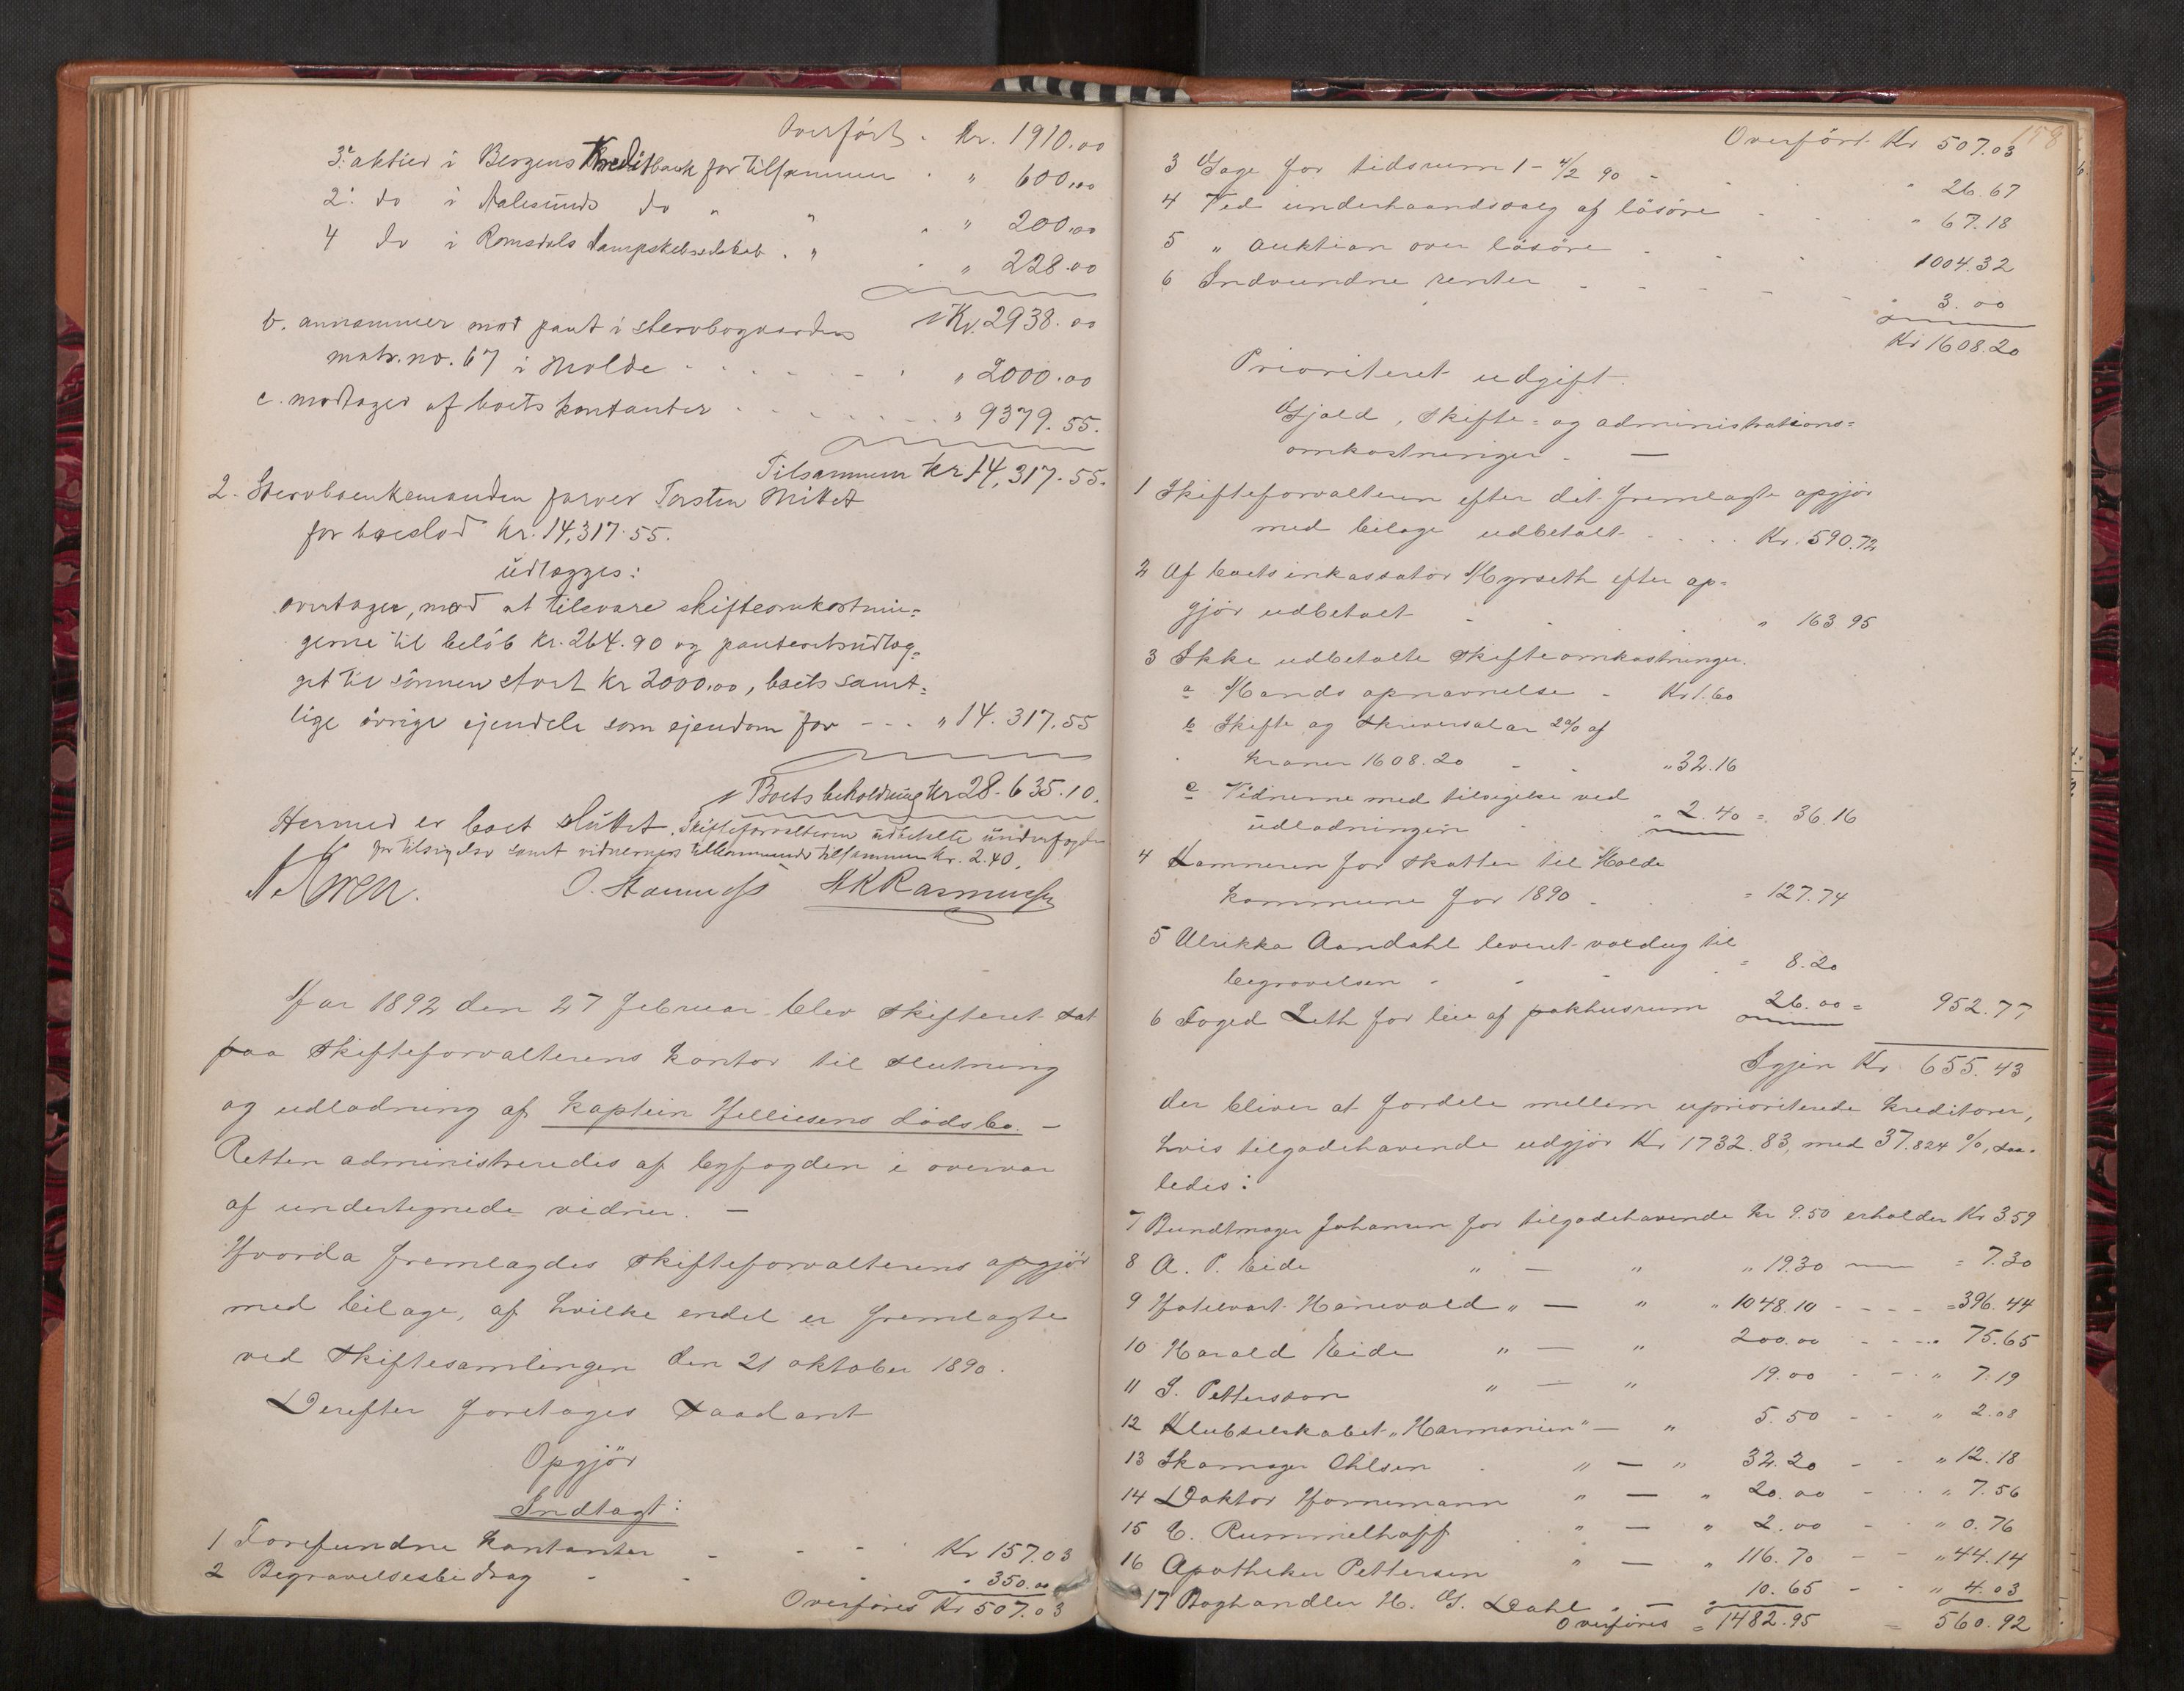 Overført. Kr. 1910.00
3: aktier i Bergens Kreditbank for tilsammen . " 600.00
2: do i Aalesunds do " " . " 200.00
4 do i Romsdals Dampskibsselskab . " . " 228.00
Kr. 2938.00
b. annammer mod pant i stervbogaarden
matr. no. 67 i Molde . . . . . " 2000.00
c. modtager af boets kontanter . . . . . " 9379.55.
Tilsammen Kr. 14,317.55.
2. Stervboenkemanden farver Torsten Mittet
for boeslod Kr. 14,317.55.
üdlægges:
overtager, mod at tilsvare skifteomkostnin=
gerne til beløb Kr. 264.90 og panteretsudlæg=
get til sønnen stort Kr 2000.00, boets samt=
lige øvrige ejendele som ejendom for - - - " 14.317.55
Boets beholdning Kr 28.635.10.
Hermed er boet sluttet. Skifteforvalteren udbetalte underfogden
for tilsigelse samt vidnernes tilkommende tilsammen Kr. 2.40.
O. Stannefs HKRasmussen
Aar 1892 den 27 februar blev skifteret sat
paa skifteforvalterens kontor til slutning
og udlodning af kaptein Helliesens dødsbo. —
Retten administreredes af byfogden i overvær
af undertegnede vidner. —
Hvorda fremlagdes skifteforvalterens opgjør
med bilage, af hvilke endel er fremlagte
ved skiftesamlingen den 21 oktober 1890.
Derefter foretages saadant
Opgjør
Indtægt:
1 Forefundne kontanter - - - Kr 157.03
2 Begravelsesbidrag - - - " 350.00
Overføres Kr 507.03
158
Overført Kr 507.03
3 Gage for tidsrum 1 - 4/2 90 - - " 26.67
4 Ved underhaandssalg af løsøre - - - " 67.18
5 " auktion over løsøre - - - 1004.32
6 Indvundne renter - - - - - " 3.00
Kr 1608.20
Prioriteret udgift.
Gjæld, skifte= og administrations=
omkostninger. —
1 Skifteforvalteren efter det fremlagte opgjør
med bilage udbetalt . . . . Kr. 590.72
2 Af boets inkassator Myrseth efter op=
gjør udbetalt - - - " 163.95
3 Ikke udbetalte skifteomkostninger.
a Mands opnævnelse - Kr 1.60
b Skifte og skriversalær 2% af
kroner 1608.20 - - " 32.16
c Vidnerne med tilsigelse ved
udlodningen - " 2.40 = 36.16
4 Kæmneren for skatter til Molde
kommune for 1890 - = 127.74
5 Ulrikka Aandahl leveret voxdug til
begravelsen - - - = 8.20
6 Foged Leth for leie af pakhusrum 26.00 = 952.77
Igjen Kr 655.43
der bliver at fordele mellem uprioriterede kreditorer,
hvis tilgodehavende udgjør Kr 1732.83, med 37.824 %, saa=
ledes:
7 Bundtmager Johansen for tilgodehavende Kr 9.50 erholder Kr 3.59
8 A. P. Eide " — " " 19.30 — = 7.30
9 Hotelvært Hanevold " — " " 1048.10 - - - = 396.44
10 Harald Eide " — " 200.00 - - - " 75.65
11 J. Pettersson " — " 19.00 - - " 7.19
12 Klubselskabet "Harmonien" — " 5.50 - - " 2.08
13 Skomager Ohlsen " — " 32.20 - - " 12.18
14 Doktor Hornemann " — " 20.00 - - " 7.56
15 E. Rummelhoff " — " 2.00 - - " 0.76
16 Apotheker Pettersen " — " 116.70 - - " 44.14
17 Boghandler H. G. Dahl . — " 10.65 - - " 4.03
Overføres = 1482.95 = 560.92